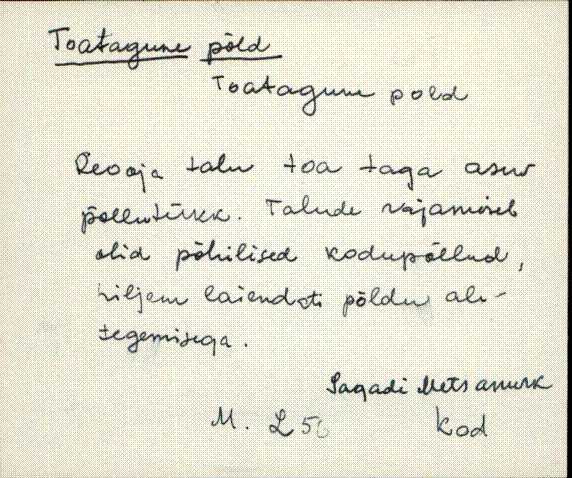 Toatagune põld
Toatagune pold
Reooja talu toa taga asuv
põllutükk. Talude rajamisel
olid põhilised kodupõllud,
hiljem laiendati põldu ale-
tegemisega.
Sagadi Metsanurk
M. L 50
Kod